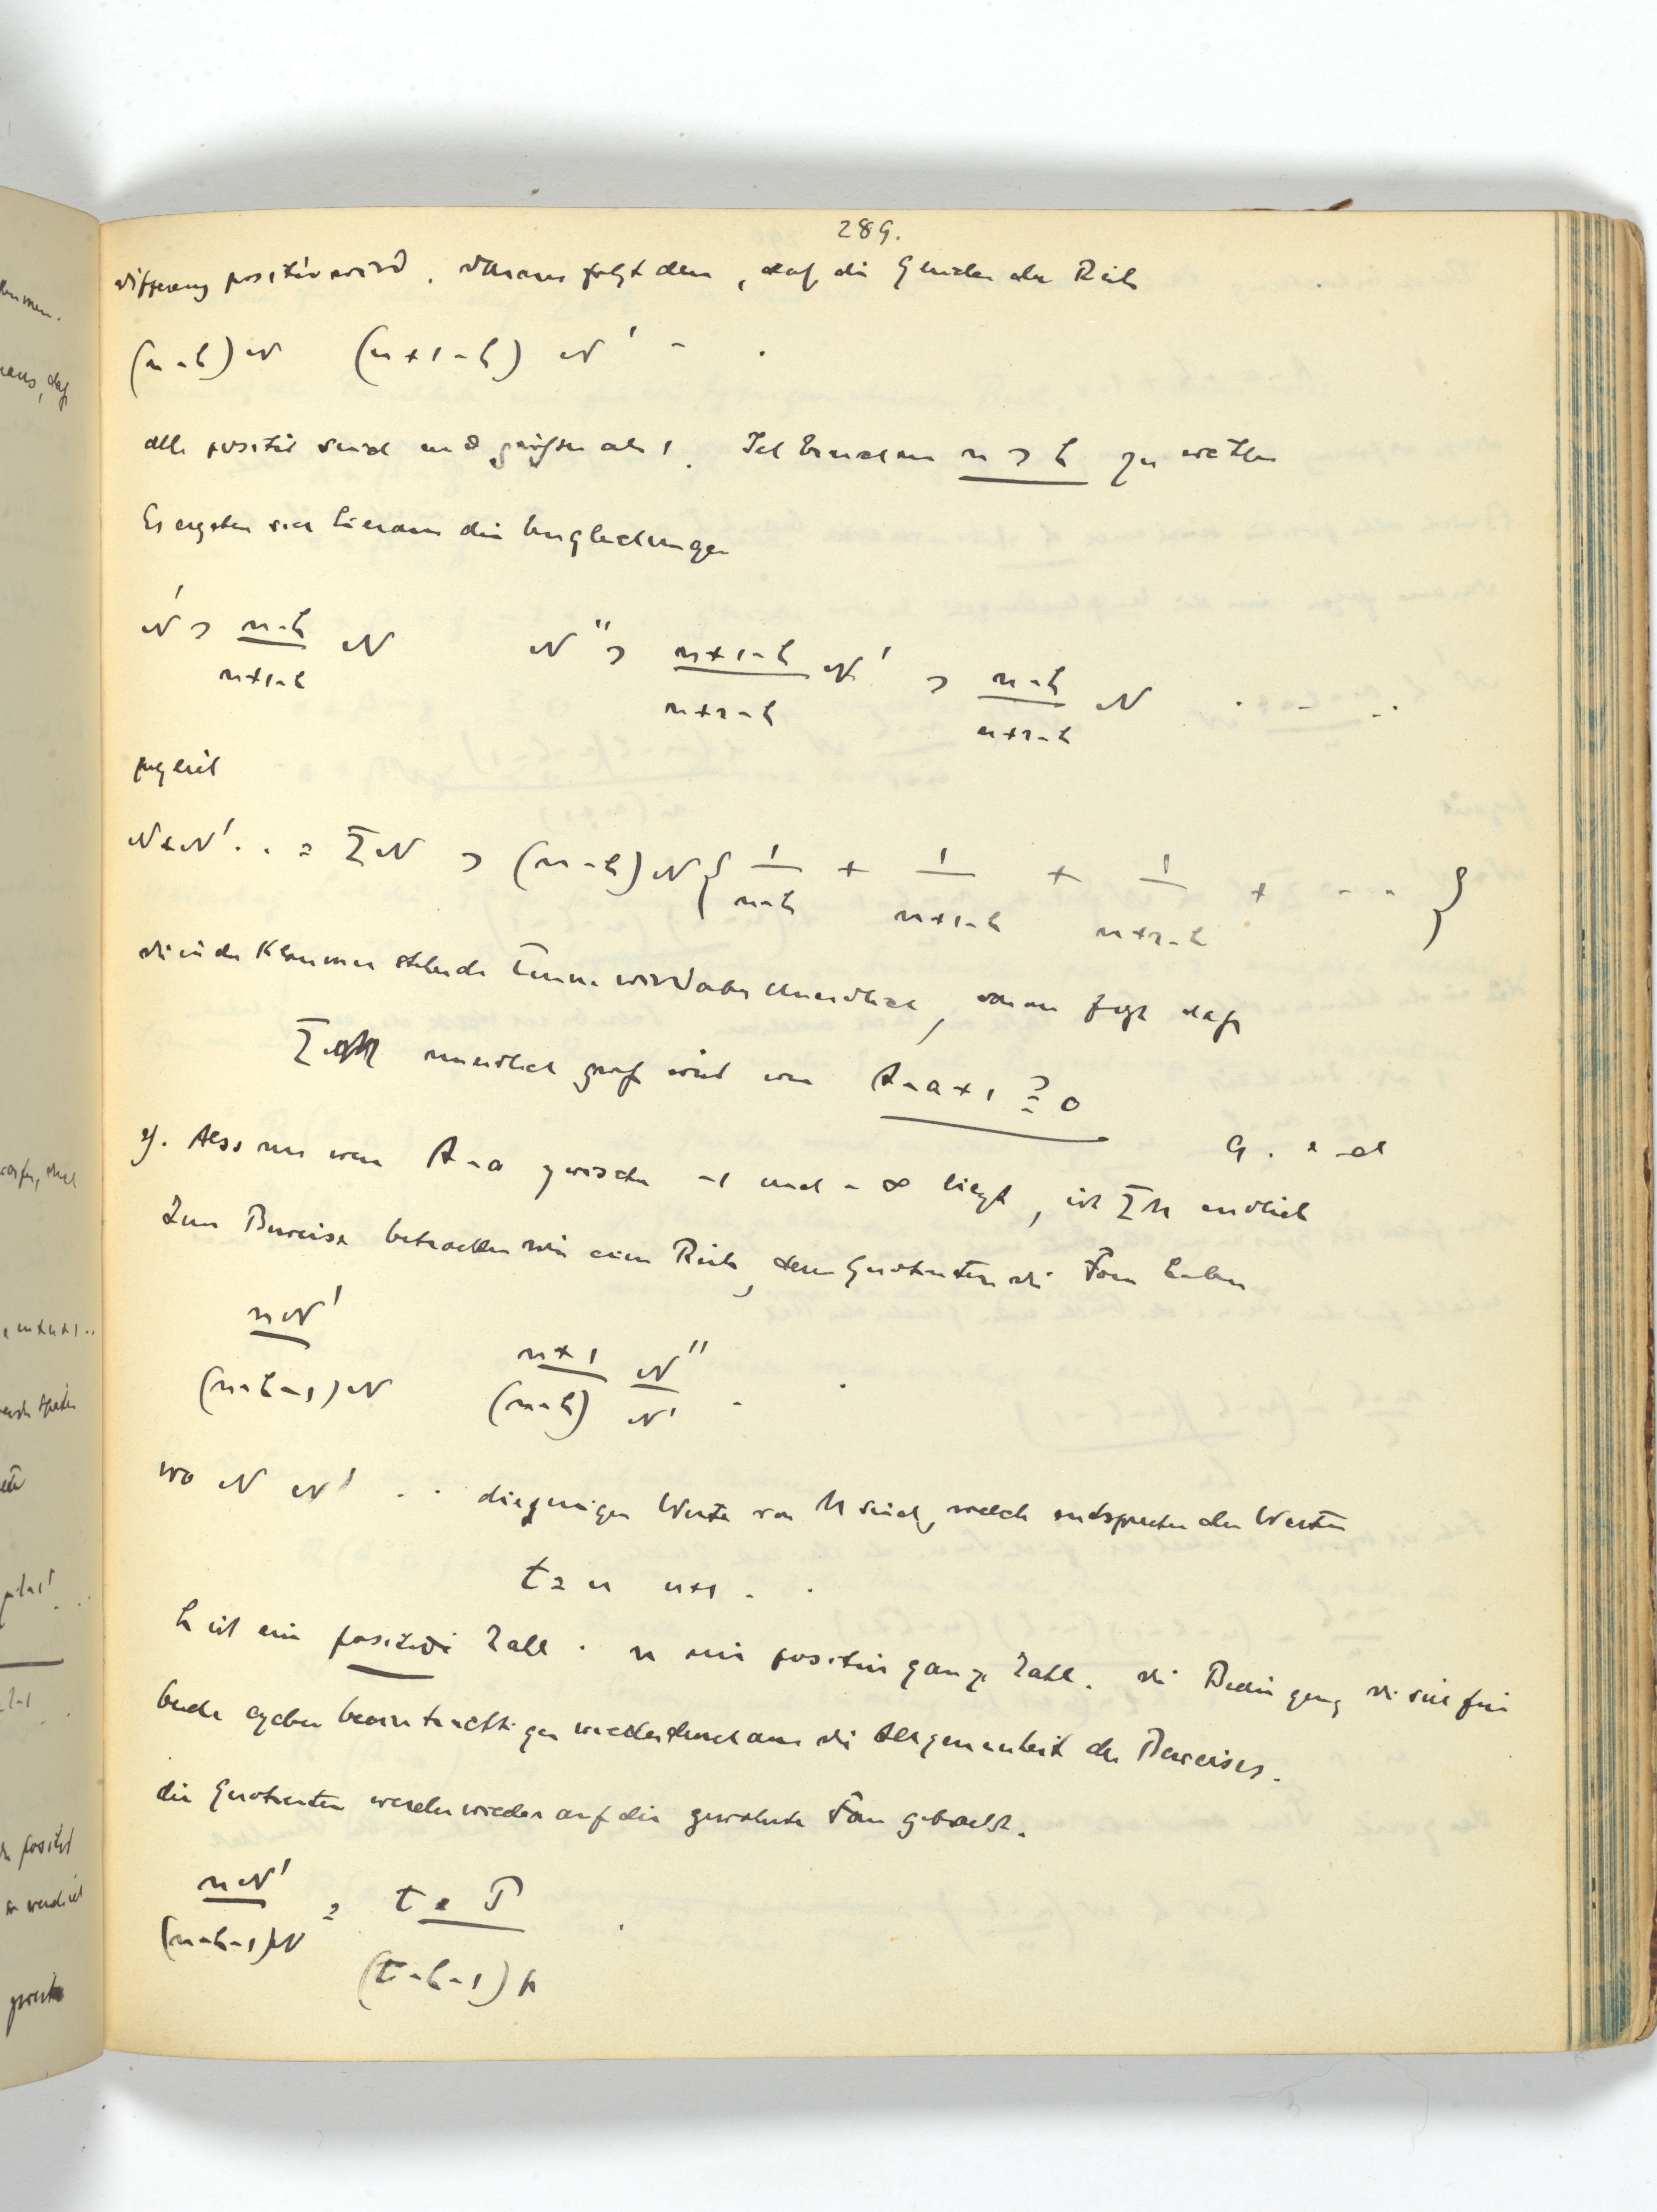 289.
Differenz positiv wird. Daraus folgt denn, daß die Glieder der Reihe
(n-h)N (n+1-h) N' - .
alle positiv sind und größer als 1. Ich brauche nur n > h zu wählen
Es ergeben sich hieraus die Ungleichungen
N' > \frac{n-h}{n+1-h} N N'' > \frac{n+1-h}{n+2-h} N' > \frac{n-h}{n+2-h} N . - - .
zugleich
N+N' . . = ΣN > (n-h)N{ \frac{1}{n-h} + \frac{1}{n+1-h} + \frac{1}{n+2-h} + - - - }
die in der Klammer stehende Summe wird aber unendlich, daraus folgt daß
Σ unendlich groß wird wenn A-a+1 ≧ 0
q. e. d
Also nur wenn A-a zwischen -1 und -∞ liegt, ist Σ endlich
Zum Beweise betrachten wir eine Reihe, deren Quotienten die Form haben
\frac{nN'}{(n-h-1)N} \frac{n+1}{(n-h)} \frac{N''}{N'} - .
wo N N' . . diejenigen Werte von sind, welche entsprechen den Werten
t = n n+1 . .
h ist eine positive Zahl. n eine positive ganze Zahl. die Bedingung die sich für
beide ergeben beeinträchtigen wieder durchaus die Allgemeinheit des Beweises.
die Quotienten werden wieder auf die gewohnte Form gebracht.
\frac{nN'}{(n-h-1)N} = \frac{t P}{(t-h-1)p} .